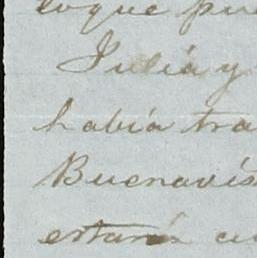 loque pu
Julia y
había tra
Buenavis
estará cu